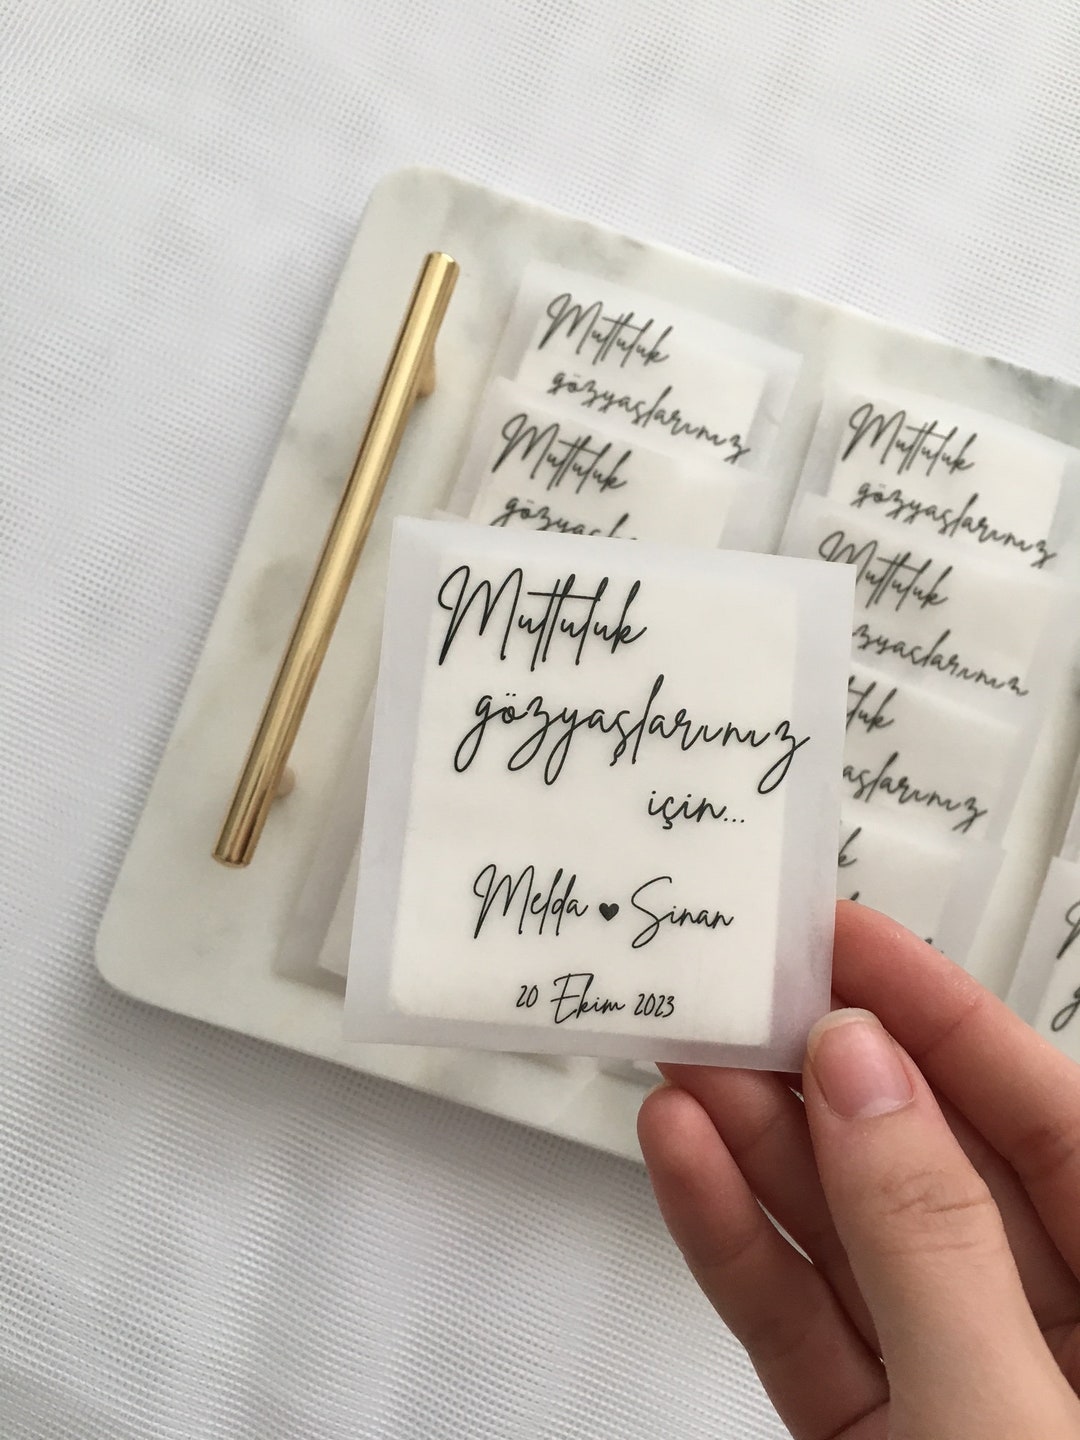 Mutluluk
gözyaşlarınız
Mutluluk
Mutluluk
gözyaşlarınız
Mutluluk
gözyaşlarınız
Mutluluk
gözyaşlarınız
için...
Melda ♥ Sinan
20 Ekim 2023